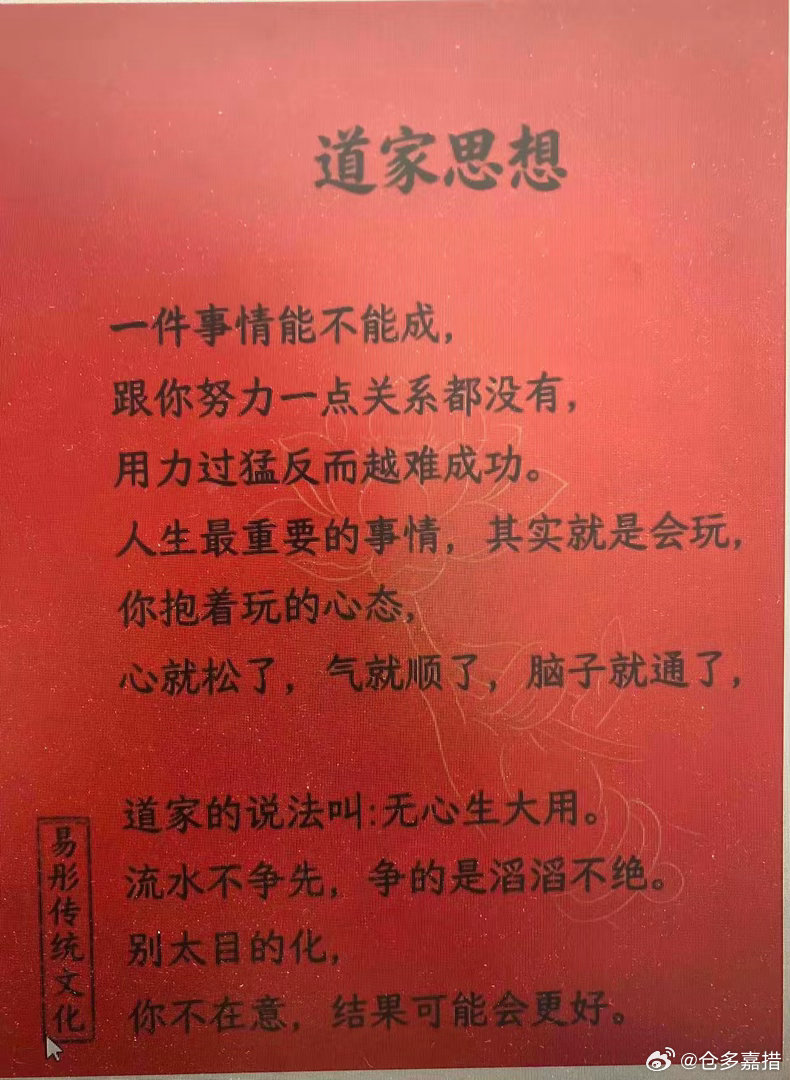 道家思想
一件事情能不能成，
跟你努力一点关系都没有，
用力过猛反而越难成功。
人生最重要的事情，其实就是会玩，
你抱着玩的心态，
心就松了，气就顺了，脑子就通了，
道家的说法叫:无心生大用。
流水不争先，争的是滔滔不绝。
别太目的化，
你不在意，结果可能会更好。
易彤传统文化
@仓多嘉措